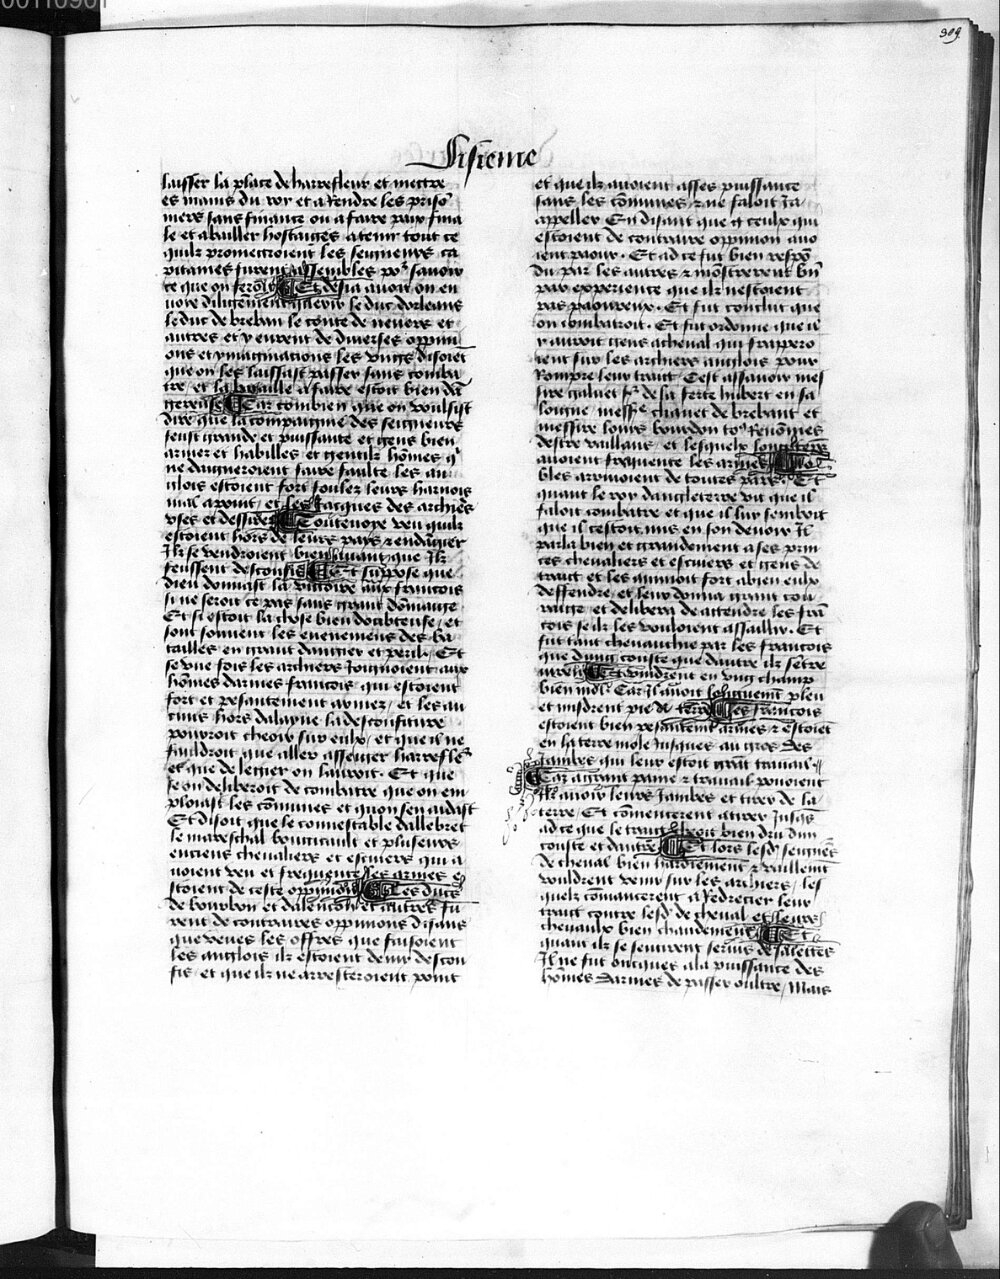 00110901
309
Sisieme
laisser la place de harrefleur et mettre
es mains du roy et a Rendre les priso
niers sans finance ou a faire paix fina
le et a bailler hostaiges a tenir tout ce
quilz promectroient les seigneurs ca
pitames furent assembles po^r savoir
ce que on feroit Et desia avoit on en
voye diligemment querir le duc dorleans
le duc de breban le conte de nevers et
autres et y eurent de diverses oppini
ons et ymaginations les ungs disoiet
que on les laissast passer sans comba
tre / et la bataille a faire estoit bien dā
gereuse Car combien que on voulsist
dire que la compaignie des seigneurs
feust grande et puissante et gens bien
armez et habilles et gentilz hōmes q^i
ne daigneroient faire faulte les an
glois estoient fort foulez leurs harnois
mal apoint / et les Jacques des archiers
uses et dessirez Toutevoye veu quilz
estoient hors de leurs pays & en dāgier
Ilz se vendroient bien avant que Ilz
feussent desconfis Et suppose que
dieu donnast la victoire aux francois
si ne seroit ce pas sans grant dōmaige
Et si estoit la chose bien doubteuse / et
sont souvent les evenemens des ba
tailles en grant dangier et peril / Et
se une fois les archiers Joignoient aux
hōmes darmes francois qui estoient
fort et pesantement armez / et les au
cuns hors dalayne la desconfiture
pourroit cheoir sur eulx / et que il ne
fauldroit que aller assegier harrefle^r
et que de legier on lauroit. Et que
se on deliberoit de combatre que on em
ploiast les cōmunes et quon sen aidast
Et disoit que le connestable dallebret
le mareschal boucicault et plusieurs
enciens chevaliers et escuiers qui a
voient veu et frequente les armes e
stoient de ceste oppinion Les ducs
de bourbon et dalencon et autres fu
rent de contraires oppinions disans
que veues les offres que faisoient
les anglois ilz estoient demi descon
fis / et que ilz ne arresteroient point
et que ilz avoient asses puissance
sans les cōmunes & ne faloit Ja
appeller En disant que ceulx qui
estoient de contraire oppinion avo
ient paour. Et ad ce fut bien respō
du par les autres & mōstrerent bn̄
par experience que ilz nestoient
pas paoureux. Et fut conclut que
on combatroit. Et fut ordonne que il
y auroit gens a cheval qui frappero
ient sur les archiers anglois pour
Rompre leur trait Cest assavoir mes
sire galuet s^r de la ferte hubert en sa
loigne mess^e clignet de brebant et
messire loys bourdon to^s Renōmes
destre vaillans / et lesquelz longtemps
avoient frequente les armes Nol
bles armoient de toutes pars / Et
quant le roy dangleterre vit que il
faloit combatre et que il luy sembloit
que il sestoit mis en son devoir Il
parla bien et grandement a ses prin
ces chevaliers et escuiers et gens de
trait et les anima fort a bien eulx
deffendre et leur donna grant cou
raige et delibera de attendre les frā
cois se ilz les vouloient assaillir. Et
fut tant chevauchie par les francois
que dung couste que dautre ilz sētre
virent Et vindrent en ung champ
bien mol / Car Il avoit longuement pleu
et misdrent pie de terre Les francois
estoient bien pesantemēt armes & estoiēt
en la terre mole Jusques au gros des
Jambes qui leur estoit grāt travail
Car a grant paine & travail povoient
Ilz avoir leurs Jambes et tirer de la
terre / Et cōmencerent a tirer Jusq̄s
ad ce que le trait estoit bien dru dun
couste et dautre Et lors lesd seigneurs
de cheval bien hardiement & vaillemēt
vouldrent venir sur les archiers / les
quelz cōmancerent a Redrecier leur
trait contre lesd de cheval et leurs
chevaulx bien chaudement Et
quant ilz se sentirent ferus de saietes
Il ne fut oncques a la puissance des
hōmes darmes de passer oultre / Mais